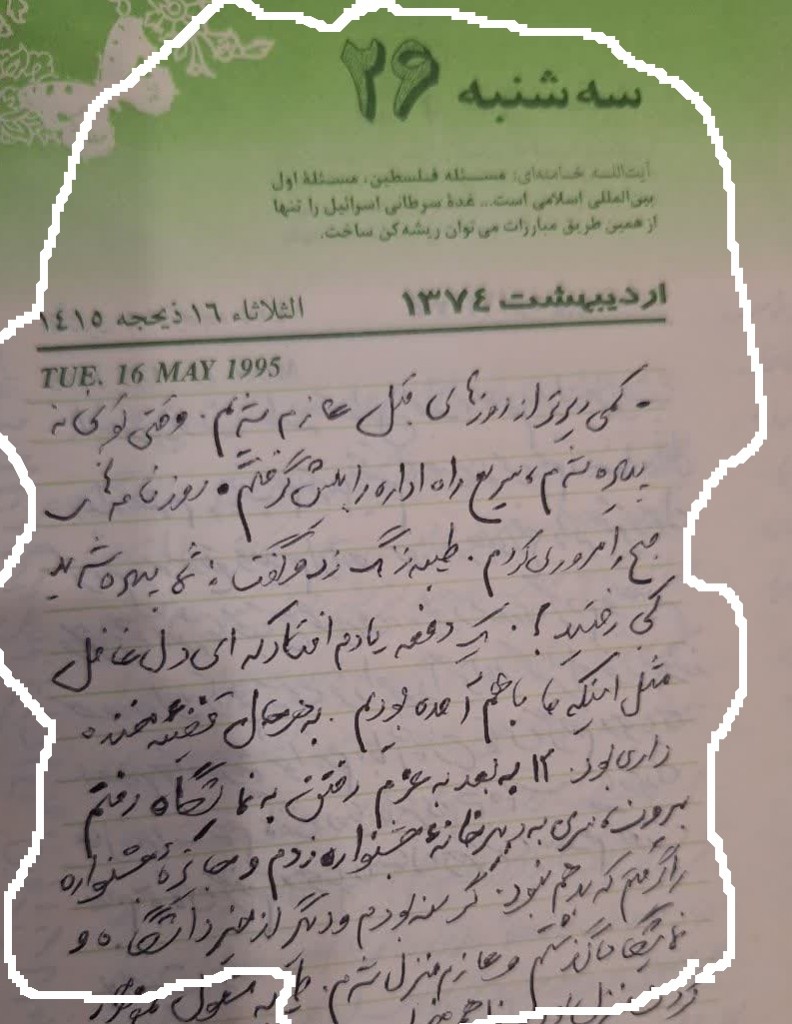 سه شنبه ۲۶
آیت‌اللـه خـامنه‌ای: مسـئله فـلسطین، مسـئلهٔ اول
بین‌المللی اسلامی است... غدهٔ سرطانی اسرائیل را تنها
از همین طریق مبارزات می توان ریشه کن ساخت.
اردیبهشت ۱۳۷٤
الثلاثاء ۱٦ ذیحجه ۱٤۱٥
TUE. 16 MAY 1995
- کمی دیرتر از روزهای قبل عازم شدم. وقتی توپخانه
پیاده شدم، سریع راه اداره را پیش گرفتم. روزنامه‌های
صبح را مروری کردم. طیبه زنگ زد و گفت: شما پیاده شدید
کی رفتید؟. یک دفعه یادم افتاد که ای دل غافل
مثل اینکه ما با هم آمده بودیم. به هر حال قضیه خنده
داری بود. ۱۲ به بعد به عزم رفتن به نمایشگاه رفتم
بیرون، سری به دبیرخانهٔ جشنواره زدم و جایزهٔ جشنواره
را گرفتم که بد هم نبود. گرسنه بودم و دیگر از خیر دانشگاه و
نمایشگاه گذشتم و عازم منزل شدم. طیبه مشغول